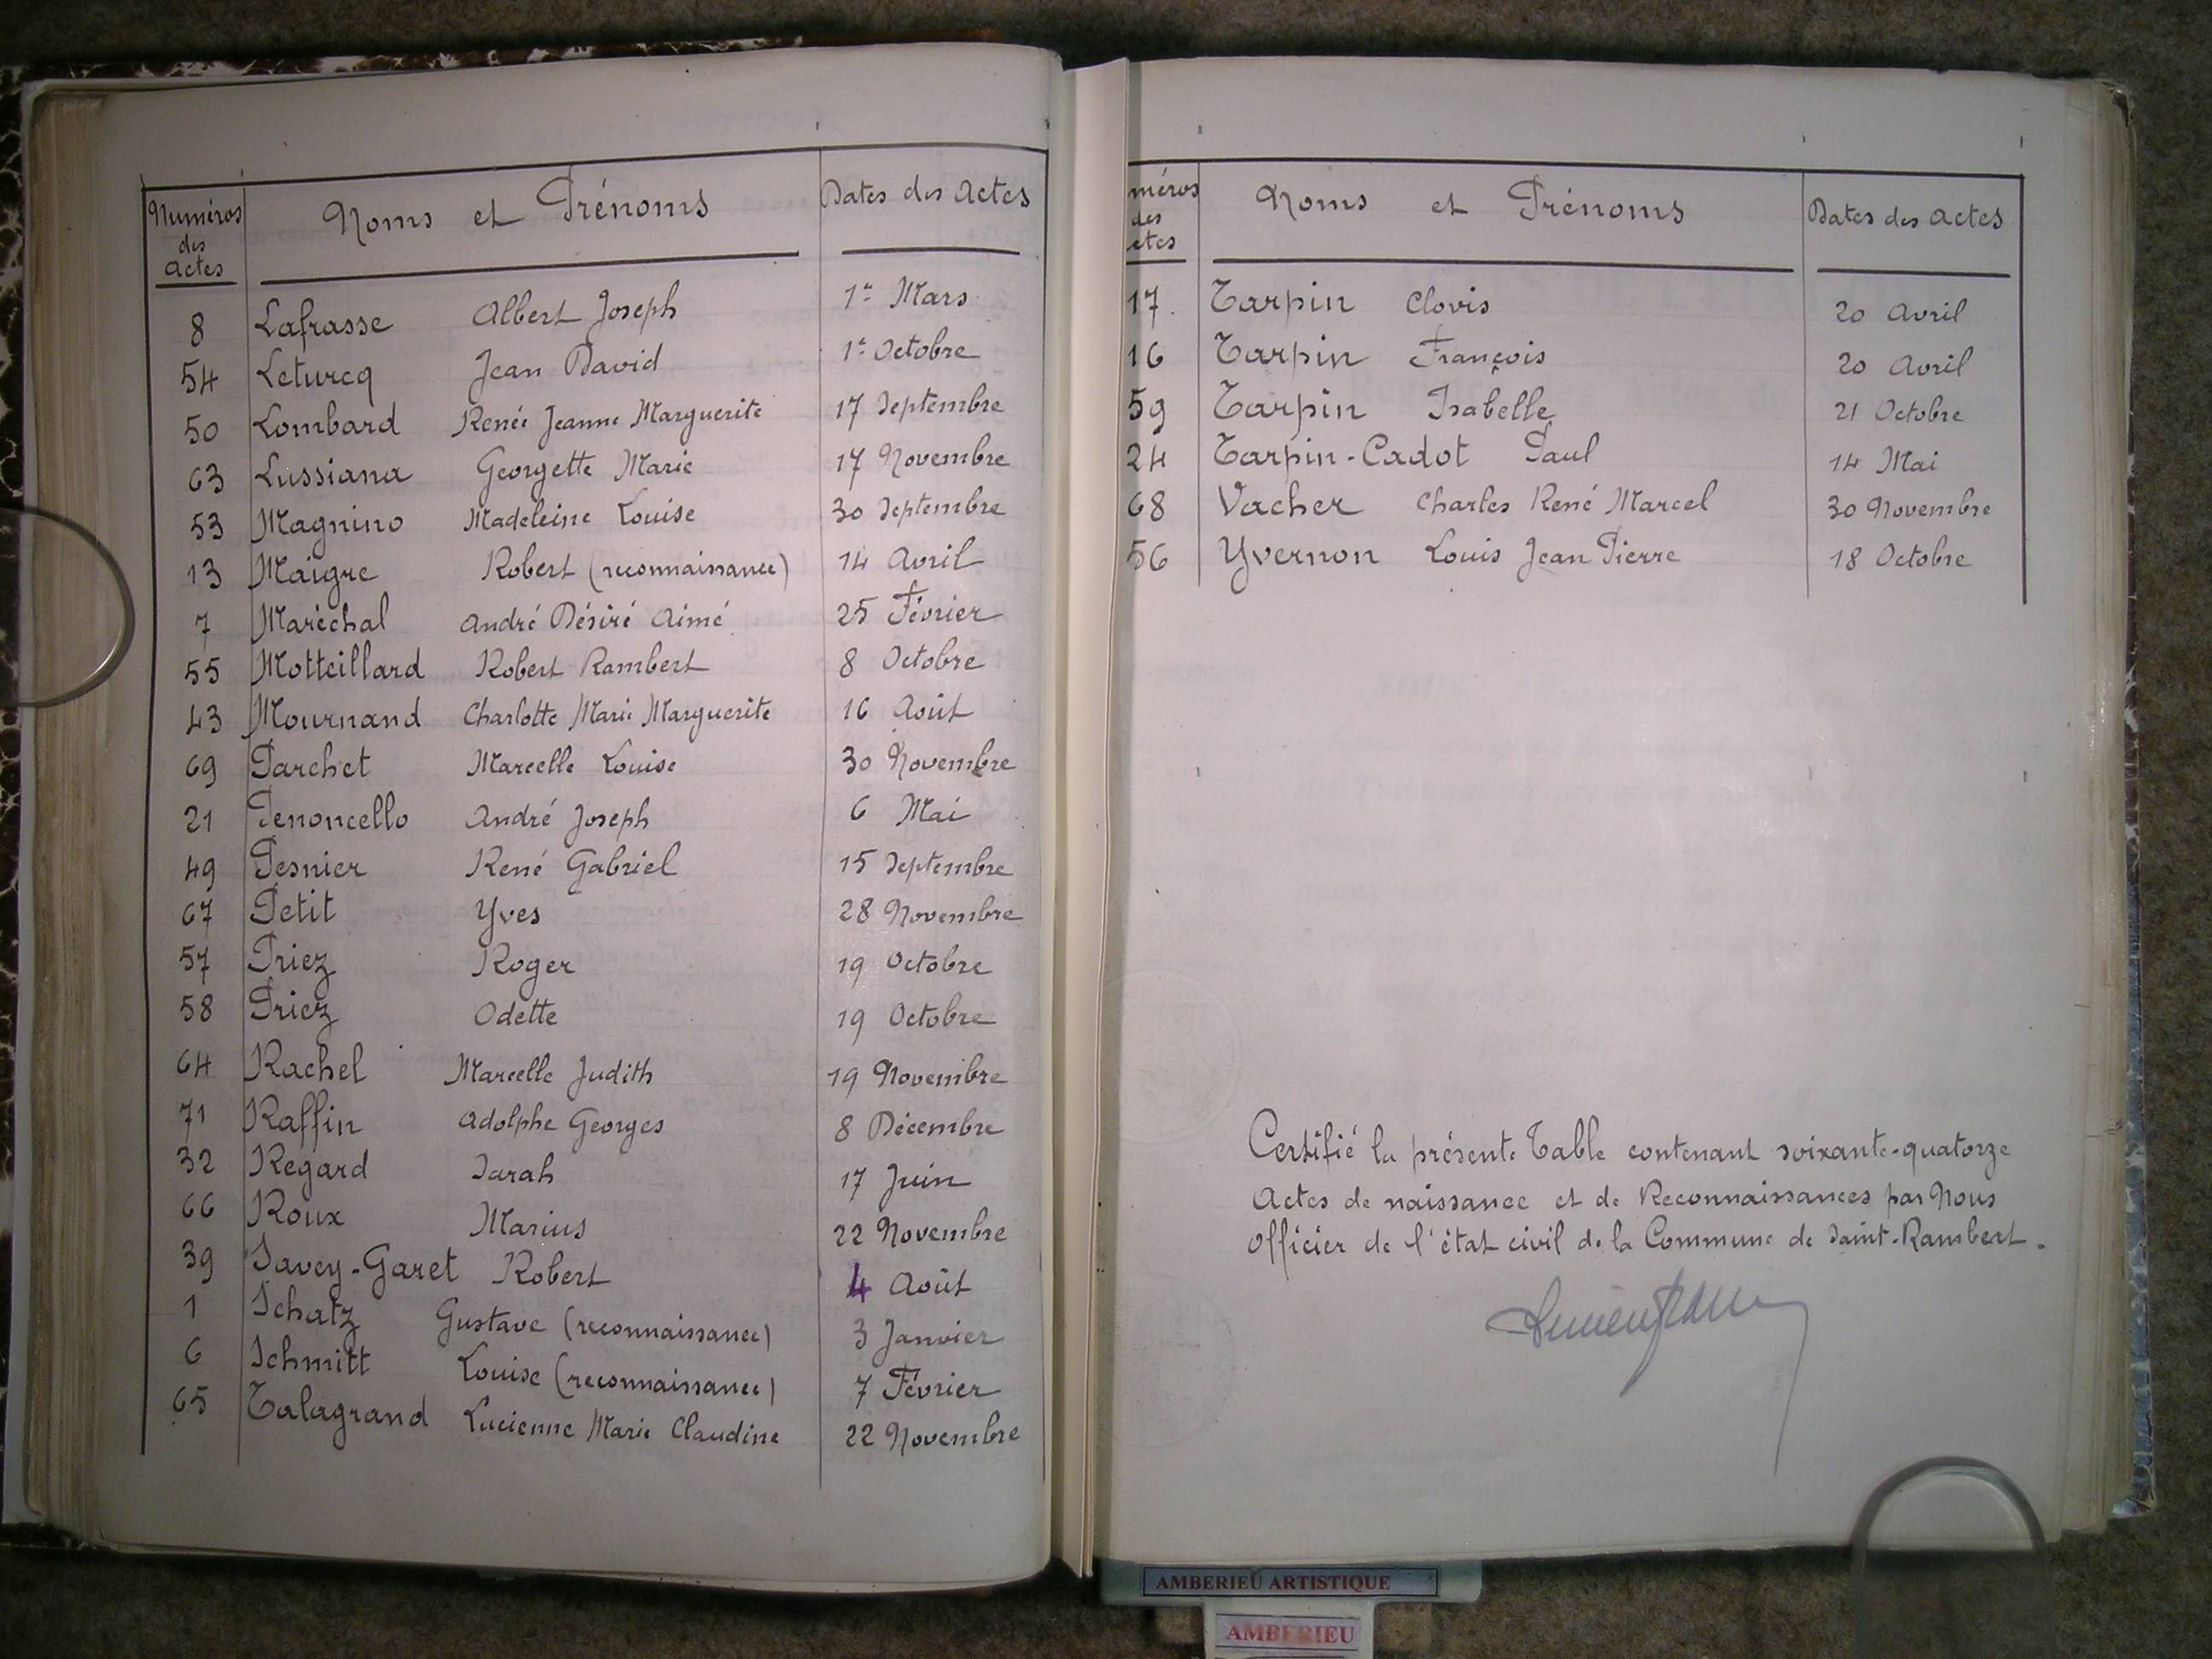 Numéros des Actes Noms et Prénoms Dates des Actes
8 Lafrasse Albert Joseph 1er Mars
54 Leturcq Jean David 1er Octobre
50 Lombard Renée Jeanne Marguerite 17 Septembre
63 Lussiana Georgette Marie 17 Novembre
53 Magnino Madeleine Louise 30 Septembre
13 Maigre Robert (reconnaissance) 14 Avril
7 Maréchal André Désiré Aimé 25 Février
55 Motteillard Robert Rambert 8 Octobre
43 Mournand Charlotte Marie Marguerite 16 Août
69 Parchet Marcelle Louise 30 Novembre
21 Penoncello André Joseph 6 Mai
49 Pesnier René Gabriel 15 Septembre
67 Petit Yves 28 Novembre
57 Priez Roger 19 Octobre
58 Priez Odette 19 Octobre
64 Rachel Marcelle Judith 19 Novembre
71 Raffin Adolphe Georges 8 Décembre
32 Regard Sarah 17 Juin
66 Roux Marius 22 Novembre
39 Savey-Garet Robert 4 Août
1 Schatz Gustave (reconnaissance) 3 Janvier
6 Schmitt Louise (reconnaissance) 7 Février
65 Talagrand Lucienne Marie Claudine 22 Novembre
méros des ctes Noms et Prénoms Dates des Actes
17. Tarpin Clovis 20 Avril
16 Tarpin François 20 Avril
59 Tarpin Isabelle 21 Octobre
24 Tarpin-Cadot Paul 14 Mai
68 Vacher Charles René Marcel 30 Novembre
56 Yvernon Louis Jean Pierre 18 Octobre
Certifié la présente Table contenant soixante-quatorze
Actes de naissance et de Reconnaissances par Nous
Officier de l'état civil de la Commune de Saint-Rambert.
AMBERIEU ARTISTIQUE
AMBERIEU